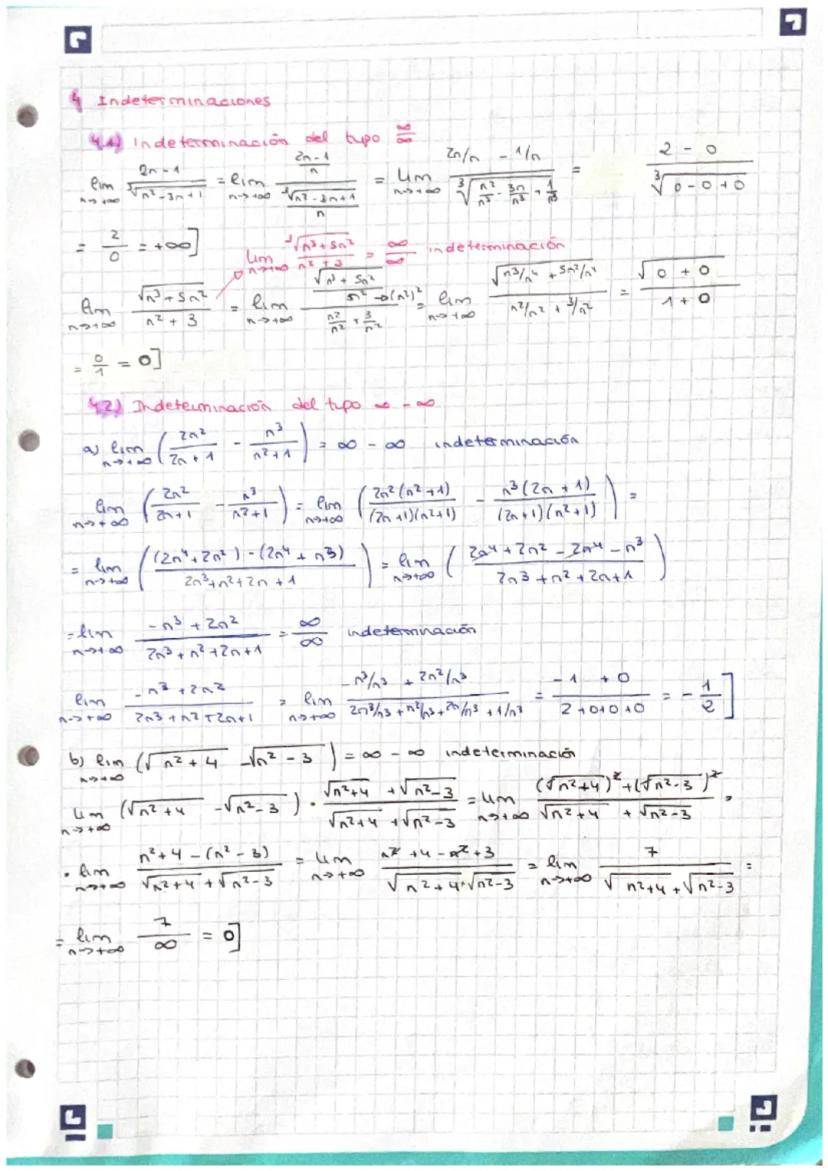 4 Indeterminaciones
4.1) Indeterminación del tipo ∞/∞
lim n→+∞ (2n-1)/∛(n²-3n+1) = lim n→+∞ ((2n-1)/n)/(∛(n²-3n+1)/n) = lim n→+∞ (2n/n - 1/n)/∛(n²/n³ - 3n/n³ + 1/n³) = (2-0)/∛(0-0+0)
= 2/0 = +∞]
lim n→+∞ √(n³+5n²)/(n²+3) = ∞/∞ indeterminación
lim n→+∞ √(n³+5n²)/(n²+3) = lim n→+∞ (√(n³+5n²)/n² → (n²)²)/(n²/n² + 3/n²) = lim n→+∞ √(n³/n⁴ + 5n²/n⁴)/(n²/n² + 3/n²) = √(0+0)/(1+0)
= 0/1 = 0]
4.2) Indeterminación del tipo ∞ - ∞
a) lim n→+∞ (2n²/(2n+1) - n³/(n²+1)) = ∞ - ∞ indeterminación
lim n→+∞ (2n²/(2n+1) - n³/(n²+1)) = lim n→+∞ (2n²(n²+1)/(2n+1)(n²+1) - n³(2n+1)/(2n+1)(n²+1)) =
= lim n→+∞ (((2n⁴+2n²)-(2n⁴+n³))/(2n³+n²+2n+1)) = lim n→+∞ ((2n⁴+2n²-2n⁴-n³)/(2n³+n²+2n+1))
= lim n→+∞ (-n³+2n²)/(2n³+n²+2n+1) = ∞/∞ indeterminación
lim n→+∞ (-n³+2n²)/(2n³+n²+2n+1) = lim n→+∞ (-n³/n³ + 2n²/n³)/(2n³/n³ + n²/n³ + 2n/n³ + 1/n³) = (-1+0)/(2+0+0+0) = -1/2]
b) lim n→+∞ (√(n²+4) - √(n²-3)) = ∞ - ∞ indeterminación
lim n→+∞ (√(n²+4) - √(n²-3)) · (√(n²+4) + √(n²-3))/(√(n²+4) + √(n²-3)) = lim n→+∞ ((√(n²+4))² + (√(n²-3))²)/(√(n²+4) + √(n²-3)) =
· lim n→+∞ (n²+4-(n²-3))/(√(n²+4) + √(n²-3)) = lim n→+∞ (n²+4-n²+3)/(√(n²+4) + √(n²-3)) = lim n→+∞ 7/(√(n²+4) + √(n²-3)) =
= lim n→+∞ 7/∞ = 0]